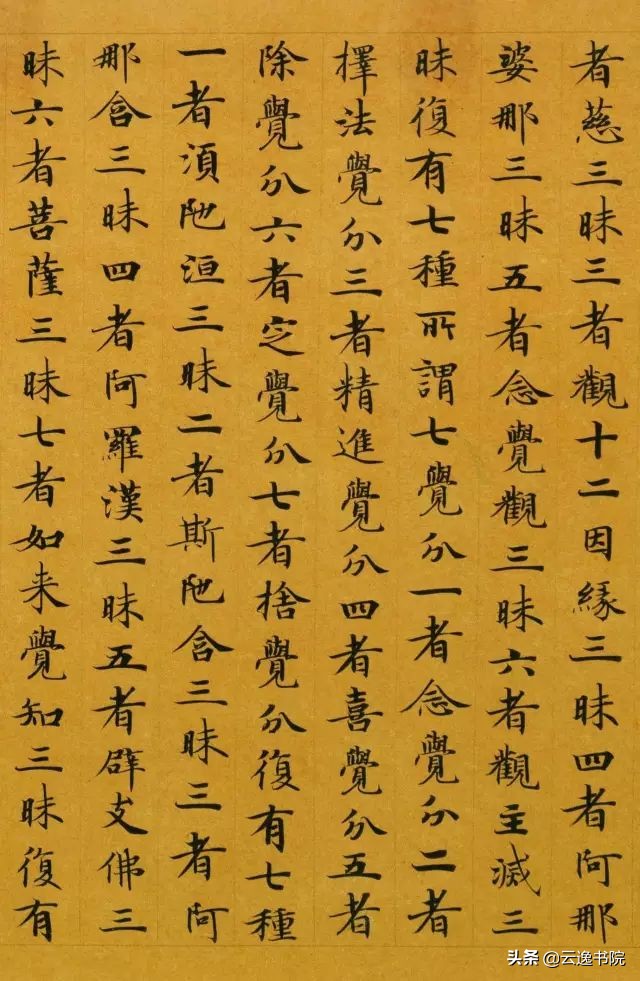 者慈三昧三者觀十二因緣三昧四者阿那
婆那三昧五者念覺觀三昧六者觀主滅三
昧復有七種所謂七覺分一者念覺分二者
擇法覺分三者精進覺分四者喜覺分五者
除覺分六者定覺分七者捨覺分復有七種
一者須陁洹三昧二者斯陁含三昧三者阿
那含三昧四者阿羅漢三昧五者辟支佛三
昧六者菩薩三昧七者如来覺知三昧復有
头条 @云逸书院